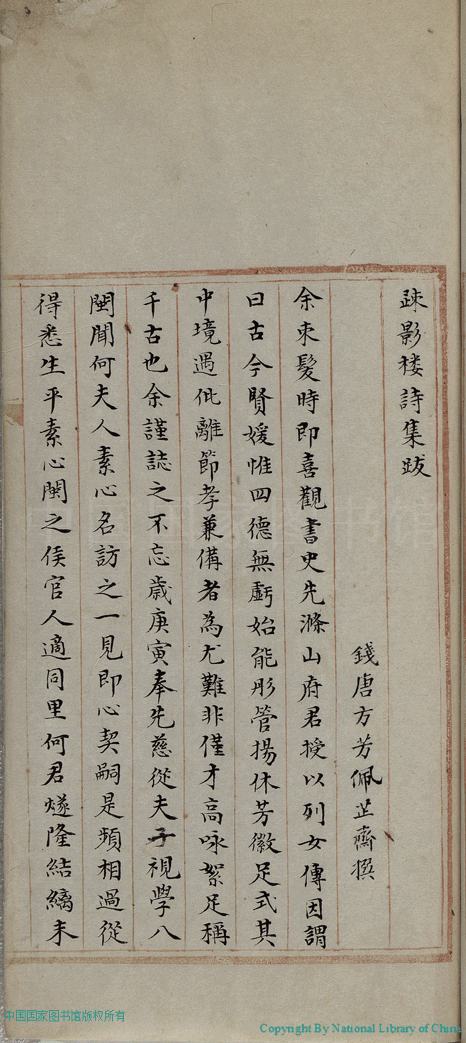 疎影楼詩集跋
錢唐方芳佩芷齋撰
余束髮時即喜觀書史先滌山府君授以列女傳因謂
曰古今賢媛惟四德無虧始能彤管揚休芳徽足式其
中境遇仳離節孝兼備者為尤難非僅才高咏絮足稱
千古也余謹誌之不忘歲庚寅奉先慈從夫子視學八
閩聞何夫人素心名訪之一見即心契嗣是頻相過從
得悉生平素心閩之侯官人適同里何君燧隆結縭未
中国国家图书馆版权所有
Copyright By National Library of China